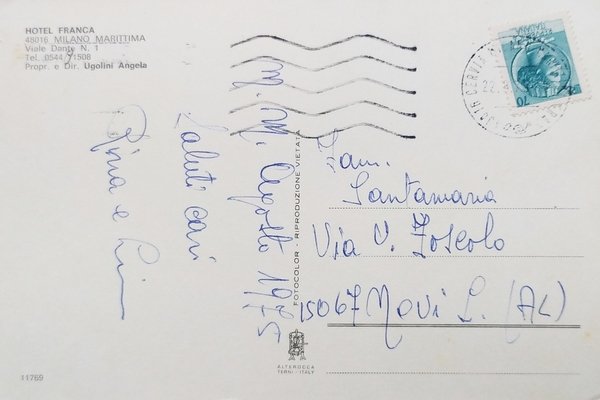 HOTEL FRANCA
48016 MILANO MARITTIMA
Viale Dante N. 1
Tel. 0544 71508
Propr. e Dir. Ugolini Angela
M. M. Agosto 1975
Saluti cari
Rina e
Fam.
Santamaria
Via U. Foscolo
15067 Novi L. (AL)
FOTOCOLOR - RIPRODUZIONE VIETATA
ALTEROCCA
TERNI - ITALY
11769
48016 CERVIA
70